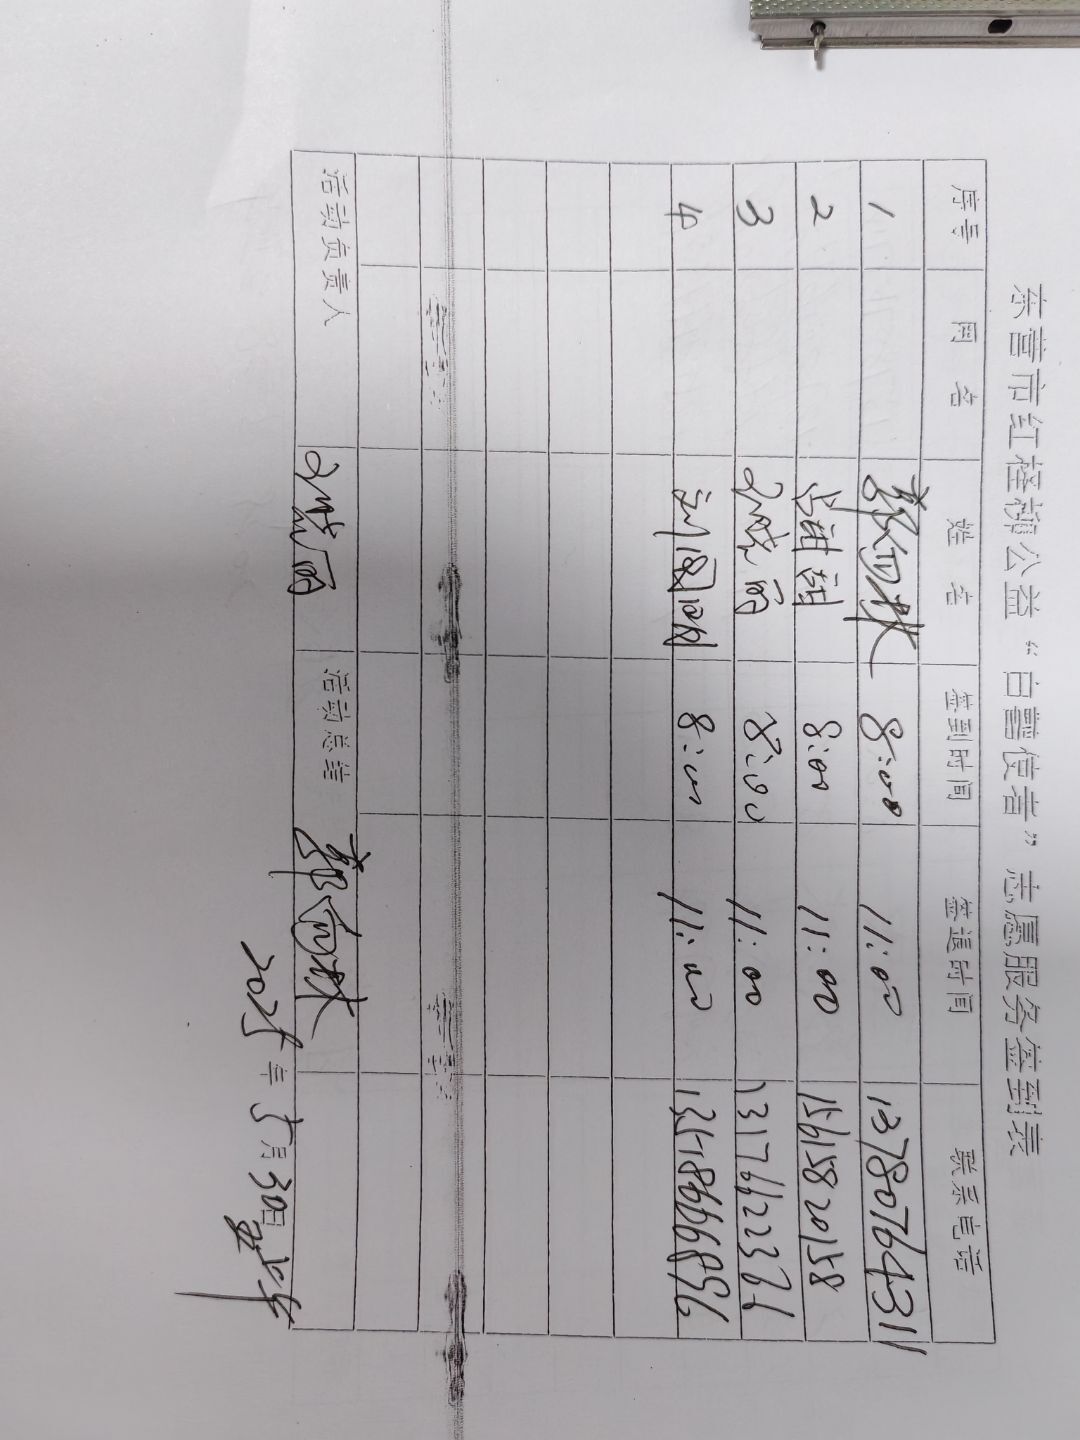 东营市红柽柳公益“白鹭使者”志愿服务签到表
序号 网 名 姓 名 签到时间 签退时间 联系电话
1 8:00 11:00 13780764311
2 8:00 11:00 15615820158
3 8:00 11:00 13176622376
4 8:00 11:00 13518666896
活动负责人 活动总结
2025年5月30日 上午